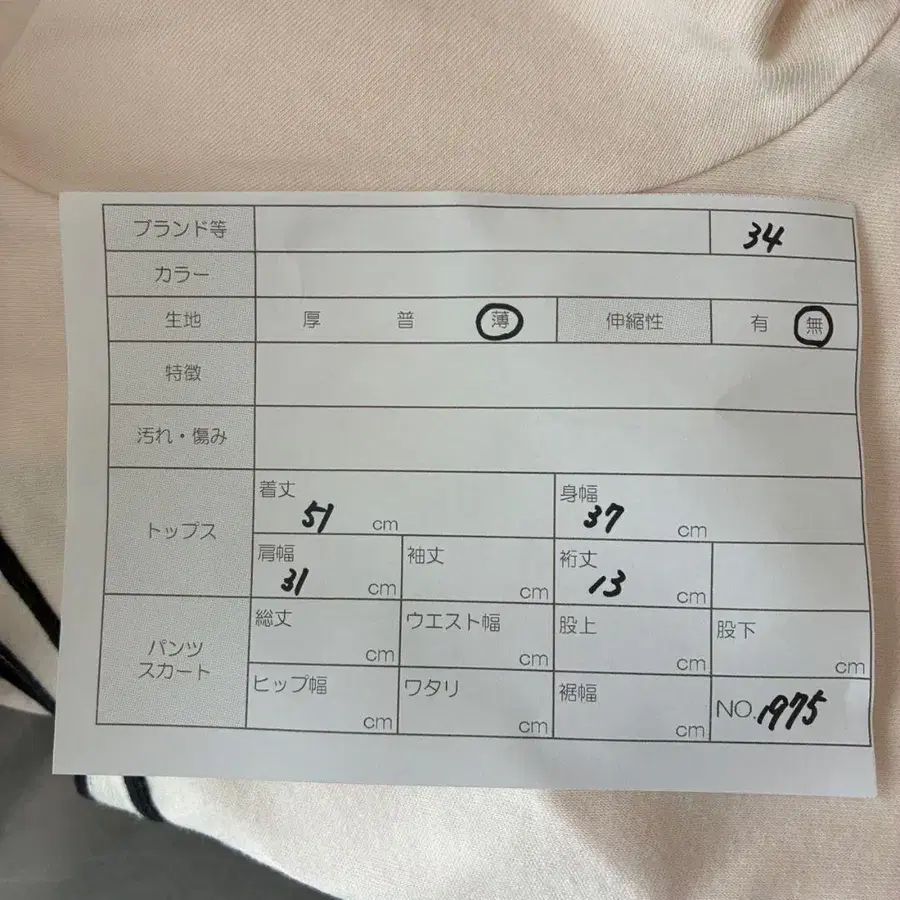 ブランド等 34
カラー
生地 厚 普 薄 伸縮性 有 無
特徴
汚れ・傷み
トップス
着丈 51 cm 身幅 37 cm
肩幅 31 cm 袖丈 cm 裄丈 13 cm
パンツ
スカート
総丈 cm ウエスト幅 cm 股上 cm 股下 cm
ヒップ幅 cm ワタリ cm 裾幅 cm NO. 1975